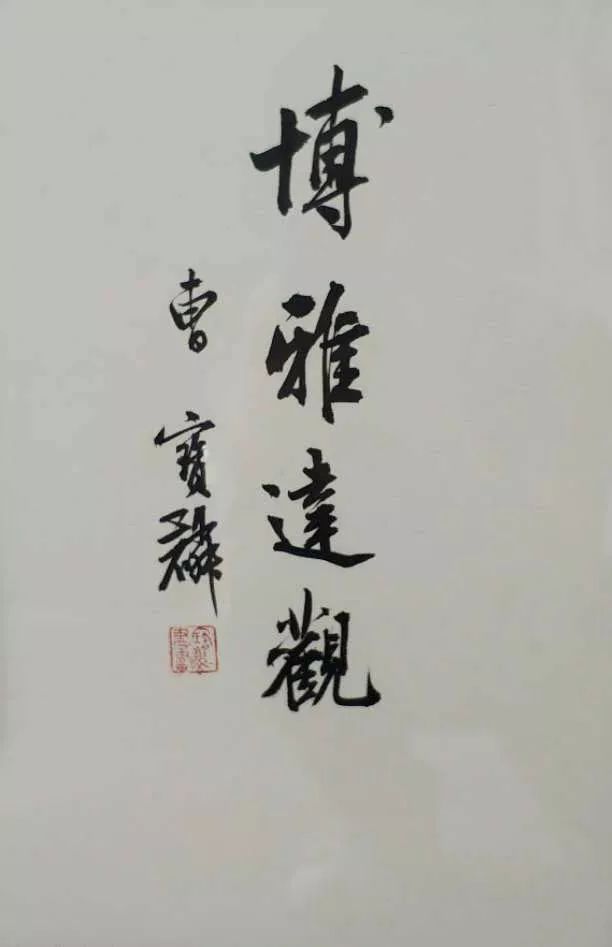 博雅達觀
曹寶麟